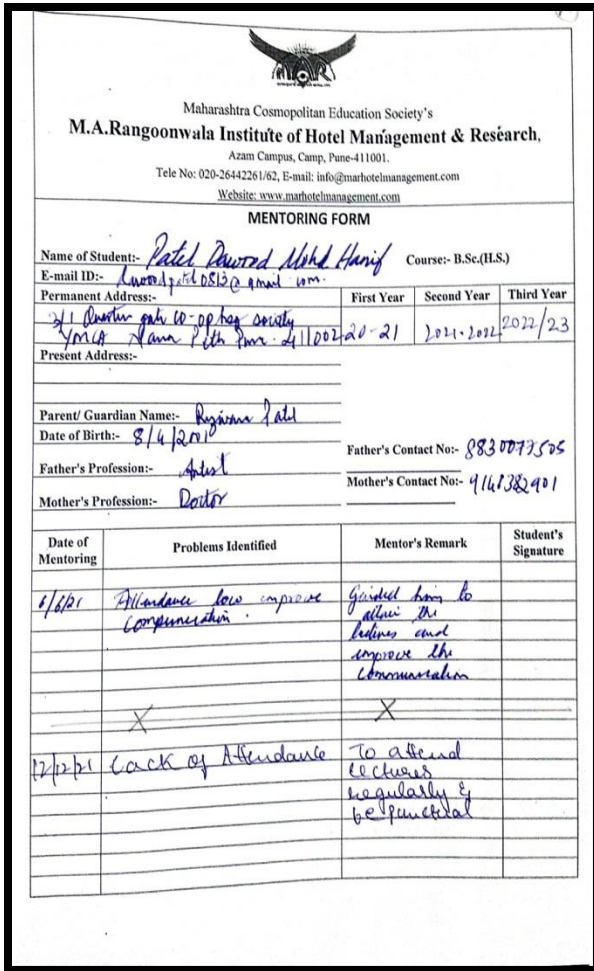 MAR
Maharashtra Cosmopolitan Education Society's
M.A.Rangoonwala Institute of Hotel Management & Research,
Azam Campus, Camp, Pune-411001.
Tele No: 020-26442261/62, E-mail: info@marhotelmanagement.com
Website: www.marhotelmanagement.com
MENTORING FORM
Name of Student:- Patel Dawood Mohd Hanif Course:- B.Sc.(H.S.)
E-mail ID:- dawoodpatel0813@gmail.com.
Permanent Address:- First Year Second Year Third Year
3/1 Quarter gate co-op hsg society
YMCA Nana Peth Pune. 411002 20-21 2021-2022 2022/23
Present Address:-
Parent/ Guardian Name:- Patel
Date of Birth:- 8/4/2001
Father's Contact No:- 8830077505
Father's Profession:- Artist
Mother's Contact No:- 9148382901
Mother's Profession:- Doctor
Date of Mentoring Problems Identified Mentor's Remark Student's Signature
6/6/21 Attendance low improve Guided him to
attend the
lectures and
improve the
communication
X X
12/12/21 Lack of Attendance To attend
lectures
regularly &
be punctual